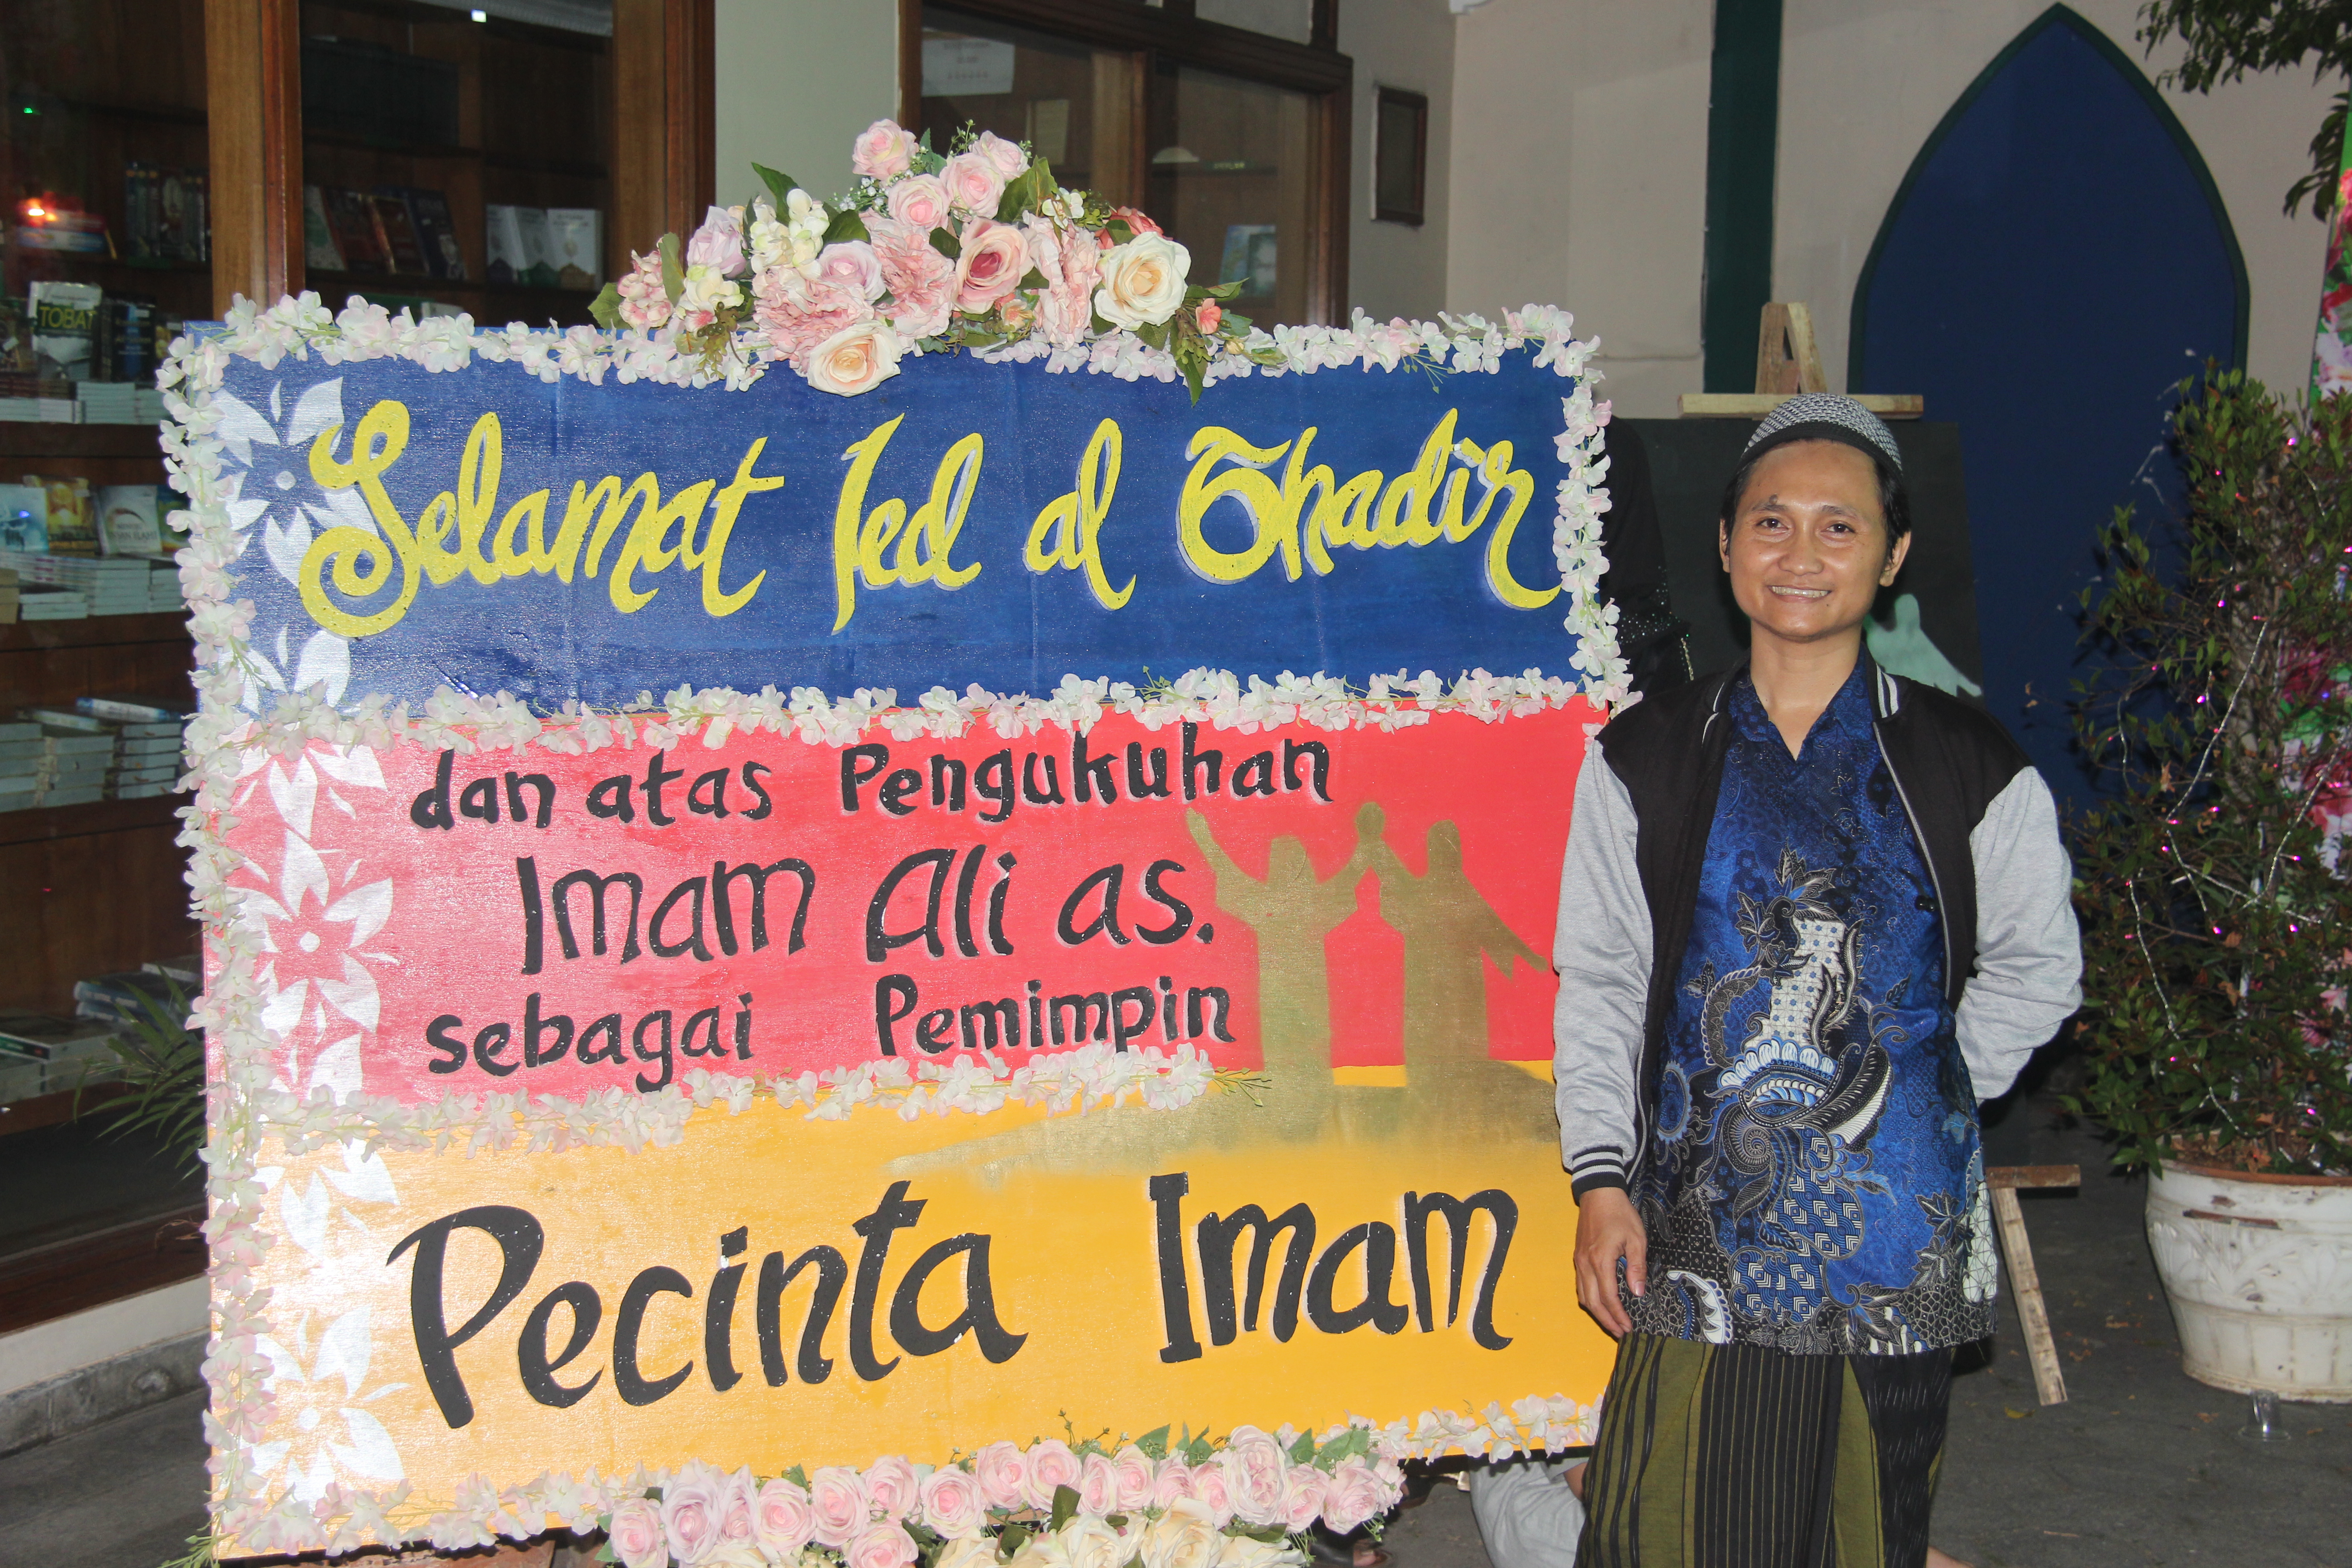 Selamat Ied al Ghadir
dan atas Pengukuhan
Imam Ali as.
sebagai Pemimpin
Pecinta Imam
TOBAT